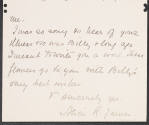 me.
I was so sorry to hear of your
illness so was Billy & long ago
I meant to write you a word. These
flowers go to you with Billy's
very best wishes
Sincerely yrs.